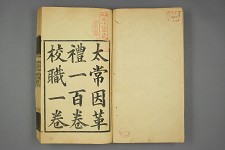 太常因革
禮一百卷
校職一卷